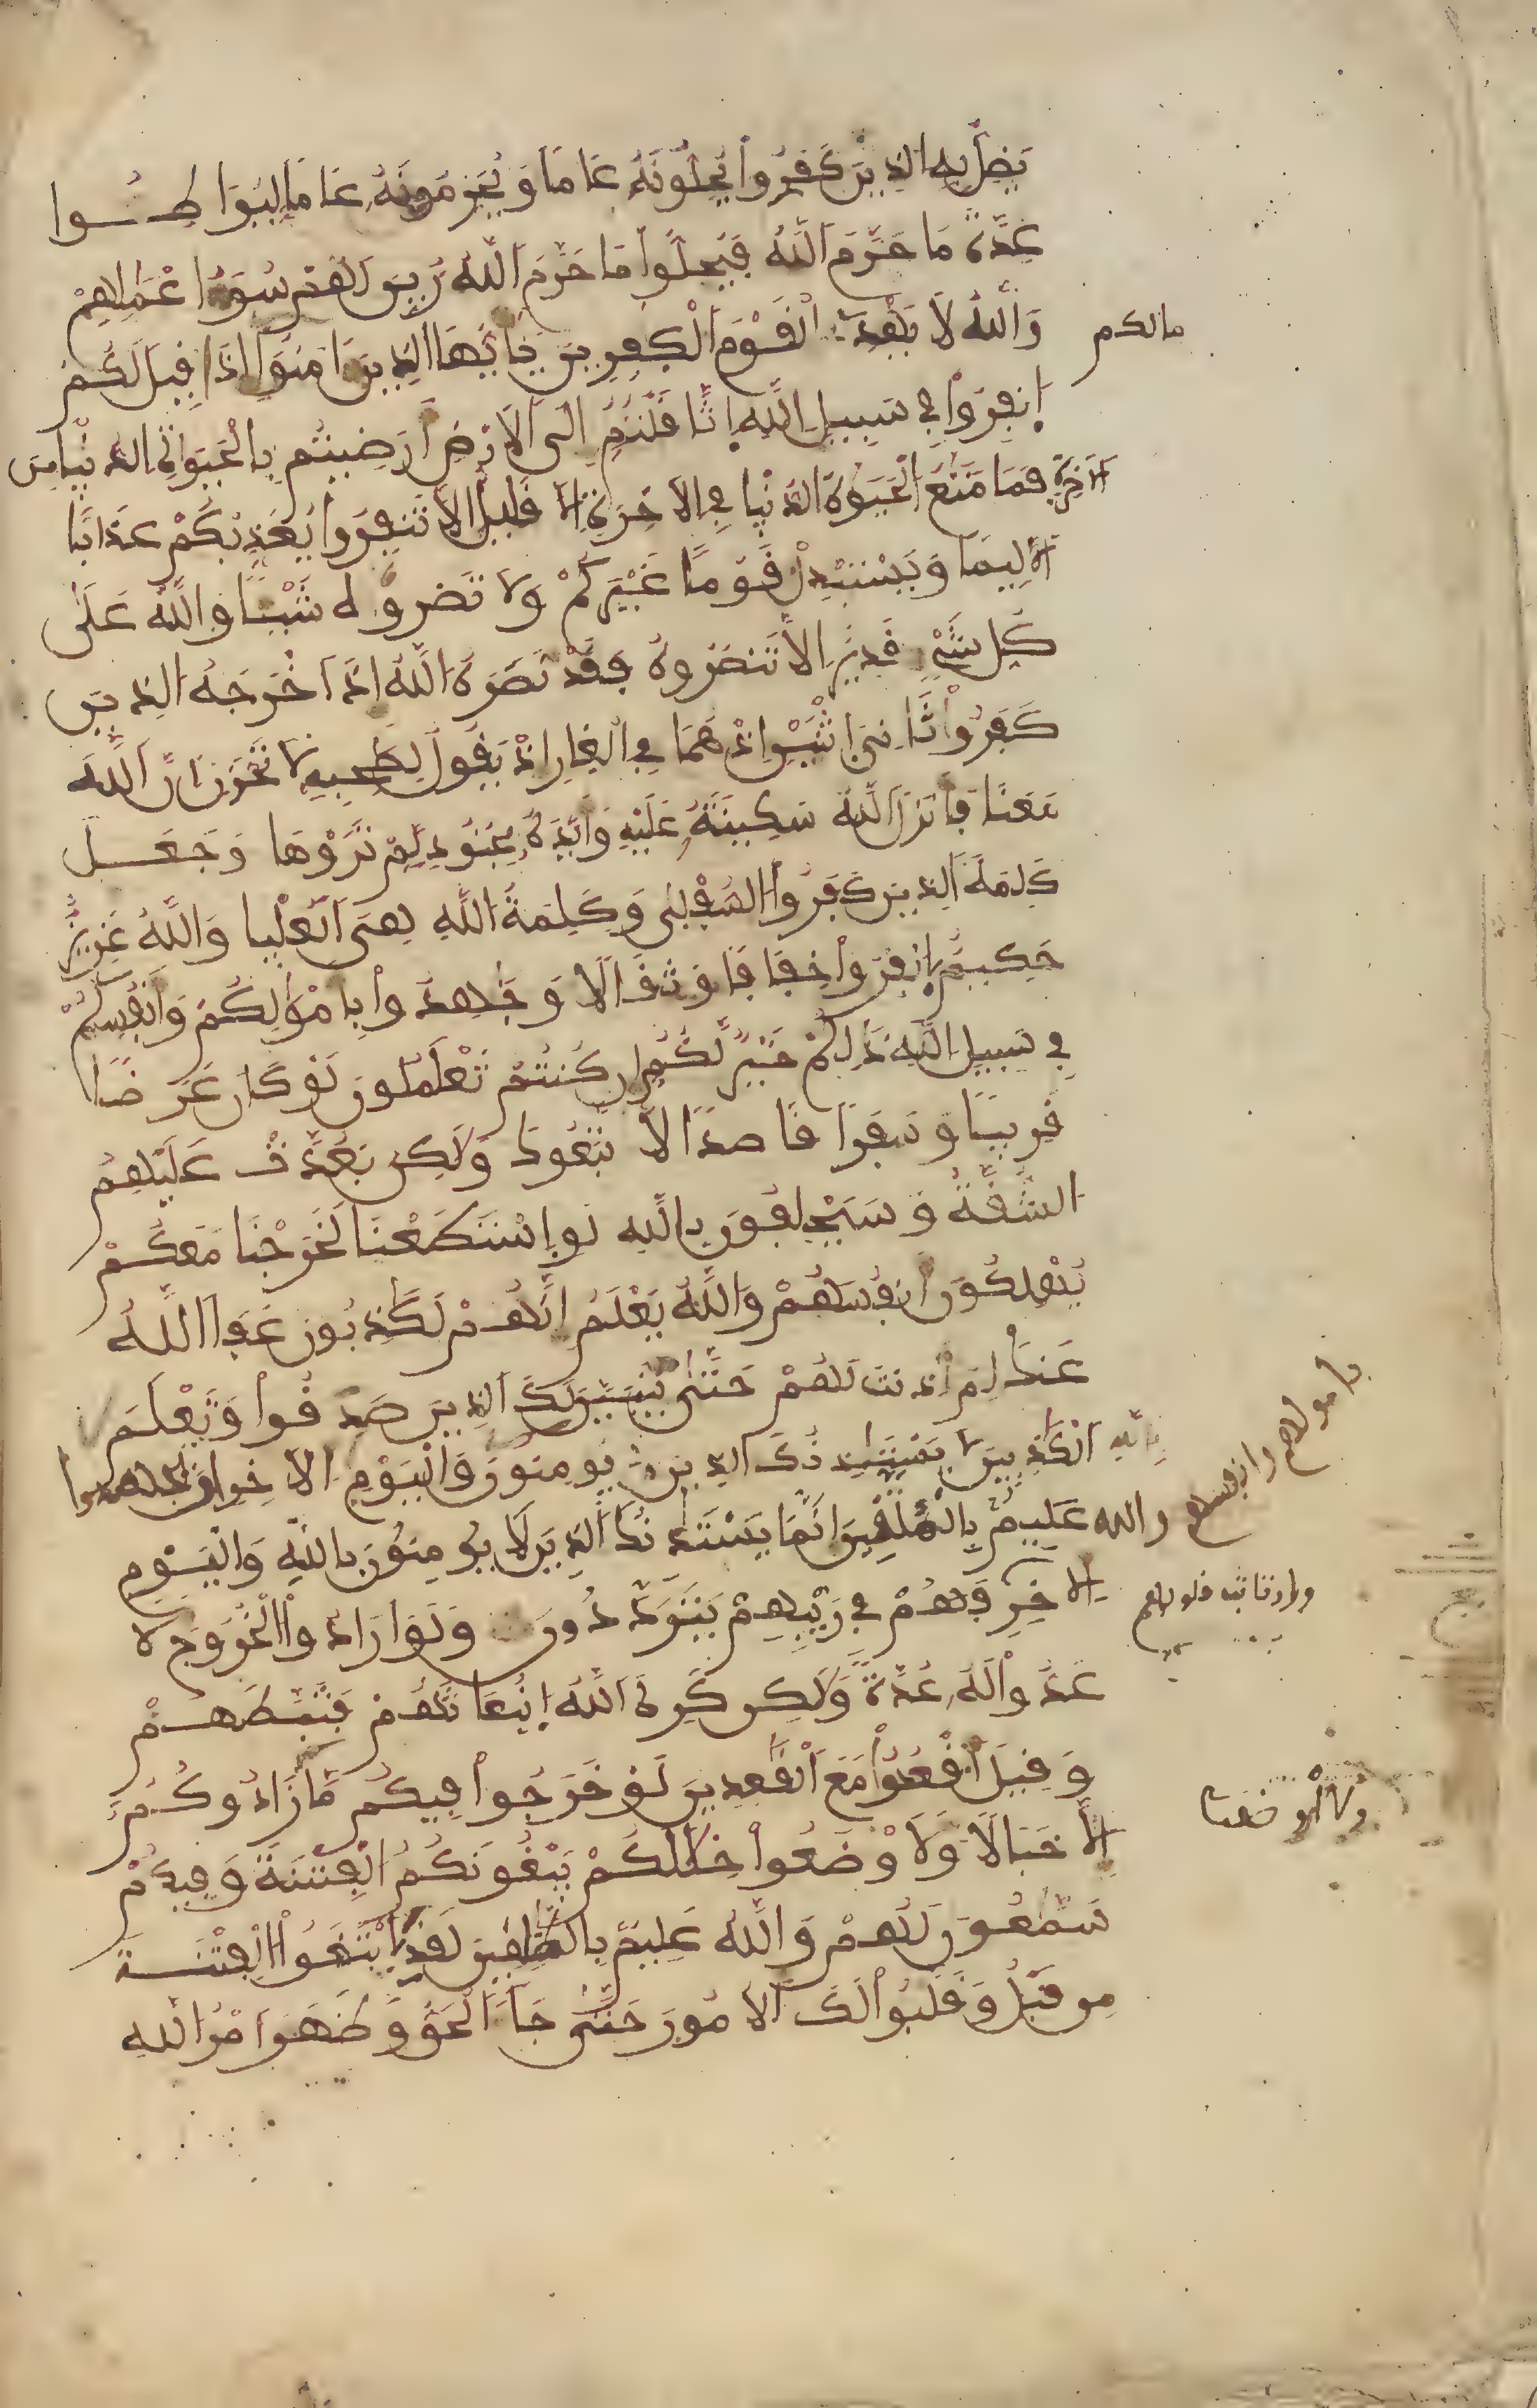 يَضِلُّ بِهِ الذِينَ كَفَرُواْ يُحِلُّونَهُ عَامًا وَيُحَرِّمُونَهُ عَامًا لِيُوَاطِــُٔـوا
عِدَّةَ مَا حَرَّمَ اَللَّهُ فَيُحِلُّواْ مَا حَرَّمَ اَللَّهُ زُيِّنَ لَهُمْ سُوٓءُ اعْمَٰلِهِمْ
وَاللَّهُ لَا يَهْدِے اِلْقَوْمَ اَلْكٰفِرِينَ يَٰأَيُّهَا الذِينَ ءَامَنُواْ إِذَا قِيلَ لَكُمُ
مالكم
اِنفِرُواْ فِي سَبِيلِ اِللَّهِ اِثَّاقَلْتُمُ إِلَى اَلَارْضِ أَرَضِيتُم بِالْحَيَوٰةِ الدُّنْيَا مِنَ
اَلَاخِرَةِ فَمَا مَتَٰعُ الْحَيَوٰةِ الدُّنْيَا فِي اِلَاخِرَةِ إِلَّا قَلِيلٌ إِلَّا تَنفِرُواْ يُعَذِّبْكُمْ عَذَابًا
اَلِيمًا وَيَسْتَبْدِلْ قَوْمًا غَيْرَكُمْ وَلَا تَضُرُّوهُ شَيْـًٔا وَاللَّهُ عَلَىٰ
كُلِّ شَيْءٍ قَدِيرٌ اِلَّا تَنصُرُوهُ فَقَدْ نَصَرَهُ اَللَّهُ إِذَ اَخْرَجَهُ الذِينَ
كَفَرُواْ ثَانِيَ اَثْنَيْنِ إِذْ هُمَا فِي اِلْغَارِ إِذْ يَقُولُ لِصَٰحِبِهِ لَا تَحْزَنِ انَّ اَللَّهَ
مَعَنَا فَأَنزَلَ اَللَّهُ سَكِينَتَهُ عَلَيْهِ وَأَيَّدَهُ بِجُنُودٍ لَّمْ تَرَوْهَا وَجَعَـــلَ
كَلِمَةَ اَلذِينَ كَفَرُواْ السُّفْلَىٰ وَكَلِمَةُ اللَّهِ هِيَ اَلْعُلْيَا وَاللَّهُ عَزِيزٌ
حَكِيمٌ اِنفِرُواْ خِفَافًا وَثِقَالًا وَجَٰهِدُواْ بِأَمْوَٰلِكُمْ وَأَنفُسِكُمْ
فِي سَبِيلِ اِللَّهِ ذَٰلِكُمْ خَيْرٌ لَّكُمُ إِن كُنتُمْ تَعْلَمُونَ لَوْ كَانَ عَرَضًا
قَرِيبًا وَسَفَرًا قَاصِدًا لَّا تَّبَعُوكَ وَلَٰكِن بَعُدَتْ عَلَيْهِمُ
الشُّقَّةُ وَسَيَحْلِفُونَ بِاللَّهِ لَوِ اِسْتَطَعْنَا لَخَرَجْنَا مَعَكُمْ
يُهْلِكُونَ أَنفُسَهُمْ وَاللَّهُ يَعْلَمُ إِنَّهُمْ لَكَٰذِبُونَ عَفَا اَللَّهُ
عَنكَ لِمَ أَذِنتَ لَهُمْ حَتَّىٰ يَتَبَيَّنَ لَكَ اَلذِينَ صَدَقُواْ وَتَعْلَمَ
اَلْكَٰذِبِينَ لَا يَسْتَٰٔذِنُكَ الذِينَ يُومِنُونَ بِاللَّهِ وَالْيَوْمِ اِلَاخِرِ أَنْ يُّجَٰهِدُوا
بأمولهم وأنفسهم
والله عَلِيمٌ بِالْمُتَّقِينَ إِنَّمَا يَسْتَٰذِنُكَ اَلذِينَ لَا يُومِنُونَ بِاللَّهِ وَالْيَوْمِ
اِلَاخِرِ فَهُمْ فِي رَيْبِهِمْ يَتَرَدَّدُونَ وَلَوَ اَرَادُواْ الْخُرُوجَ لَا
وارتابت قلوبهم
عَدُّواْ لَهُ عُدَّةً وَلَٰكِن كَرِهَ اَللَّهُ اِنۢبِعَاثَهُمْ فَثَبَّطَهُمْ
وَقِيلَ اَقْعُدُواْ مَعَ اَلْقَٰعِدِينَ لَوْ خَرَجُواْ فِيكُم مَّا زَادُوكُمُ
إِلَّا خَبَالًا وَلَأَوْضَعُواْ خِلَٰلَكُمْ يَبْغُونَكُمُ الْفِتْنَةَ وَفِيكُمْ
سَمَّٰعُونَ لَهُمْ وَاللَّهُ عَلِيمٌ بِالظَّٰلِمِينَ لَقَدِ اِبْتَغَوُاْ الْفِتْنَــةَ
مِن قَبْلُ وَقَلَّبُواْ لَكَ اَلُامُورَ حَتَّىٰ جَآءَ اَلْحَقُّ وَظَهَرَ أَمْرُ اللَّهِ